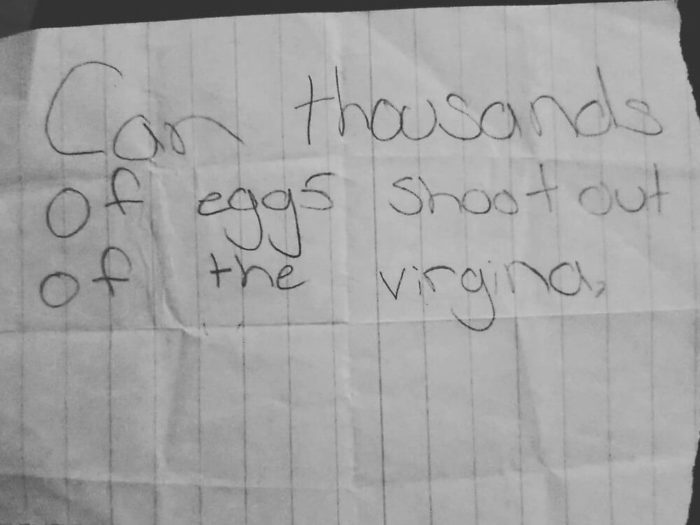 Can thousands
of eggs shoot out
of the virgina,